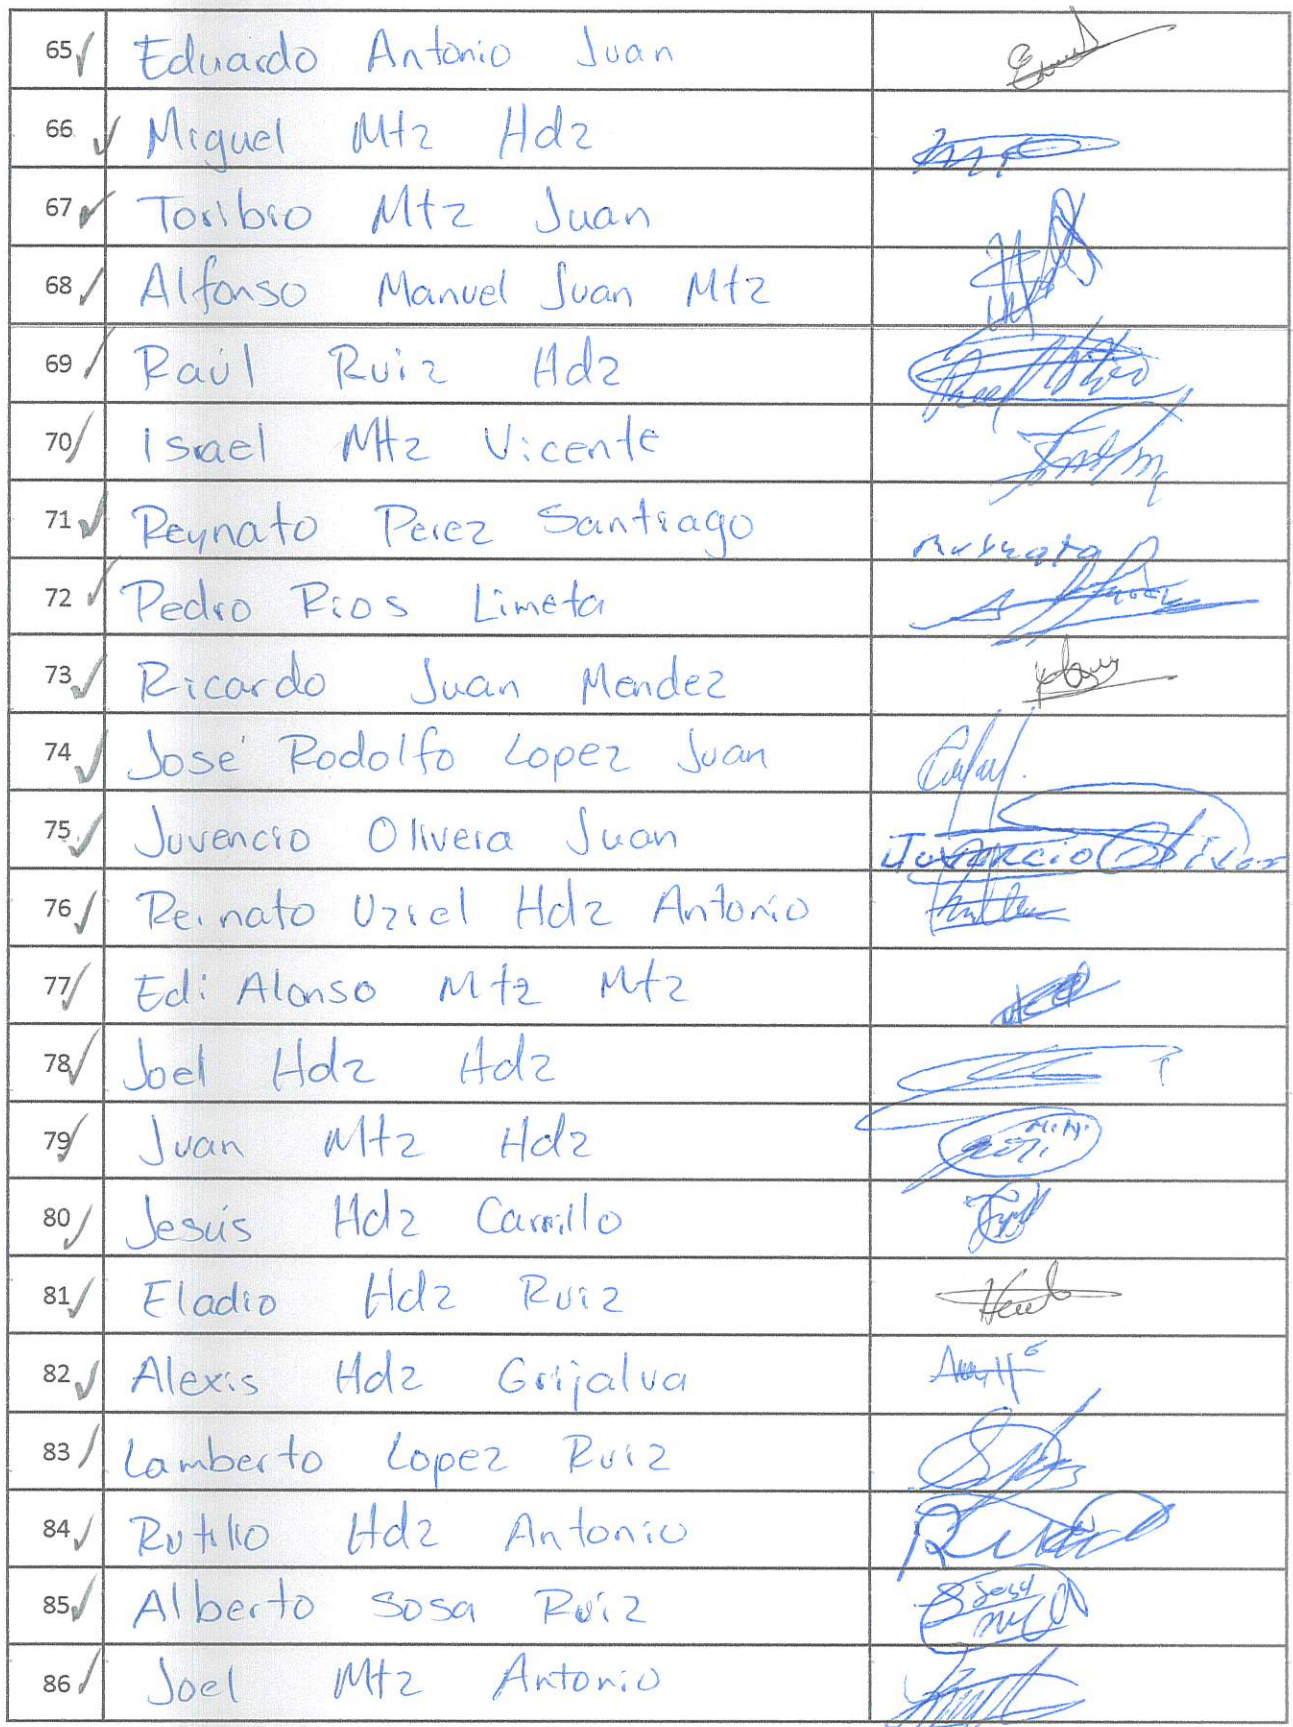 65 Eduardo Antonio Juan
66 Miguel Mtz Hdz
67 Toribio Mtz Juan
68 Alfonso Manuel Juan Mtz
69 Raúl Ruiz Hdz
70 Israel Mtz Vicente
71 Reynato Perez Santiago
72 Pedro Rios Limeta
73 Ricardo Juan Mendez
74 José Rodolfo Lopez Juan
75 Juvencio Olivera Juan
76 Reinato Uziel Hdz Antonio
77 Edi Alonso Mtz Mtz
78 Joel Hdz Hdz
79 Juan Mtz Hdz
80 Jesús Hdz Carrillo
81 Eladio Hdz Ruiz
82 Alexis Hdz Grijalva
83 Lamberto Lopez Ruiz
84 Rutilio Hdz Antonio
85 Alberto Sosa Ruiz
86 Joel Mtz Antonio